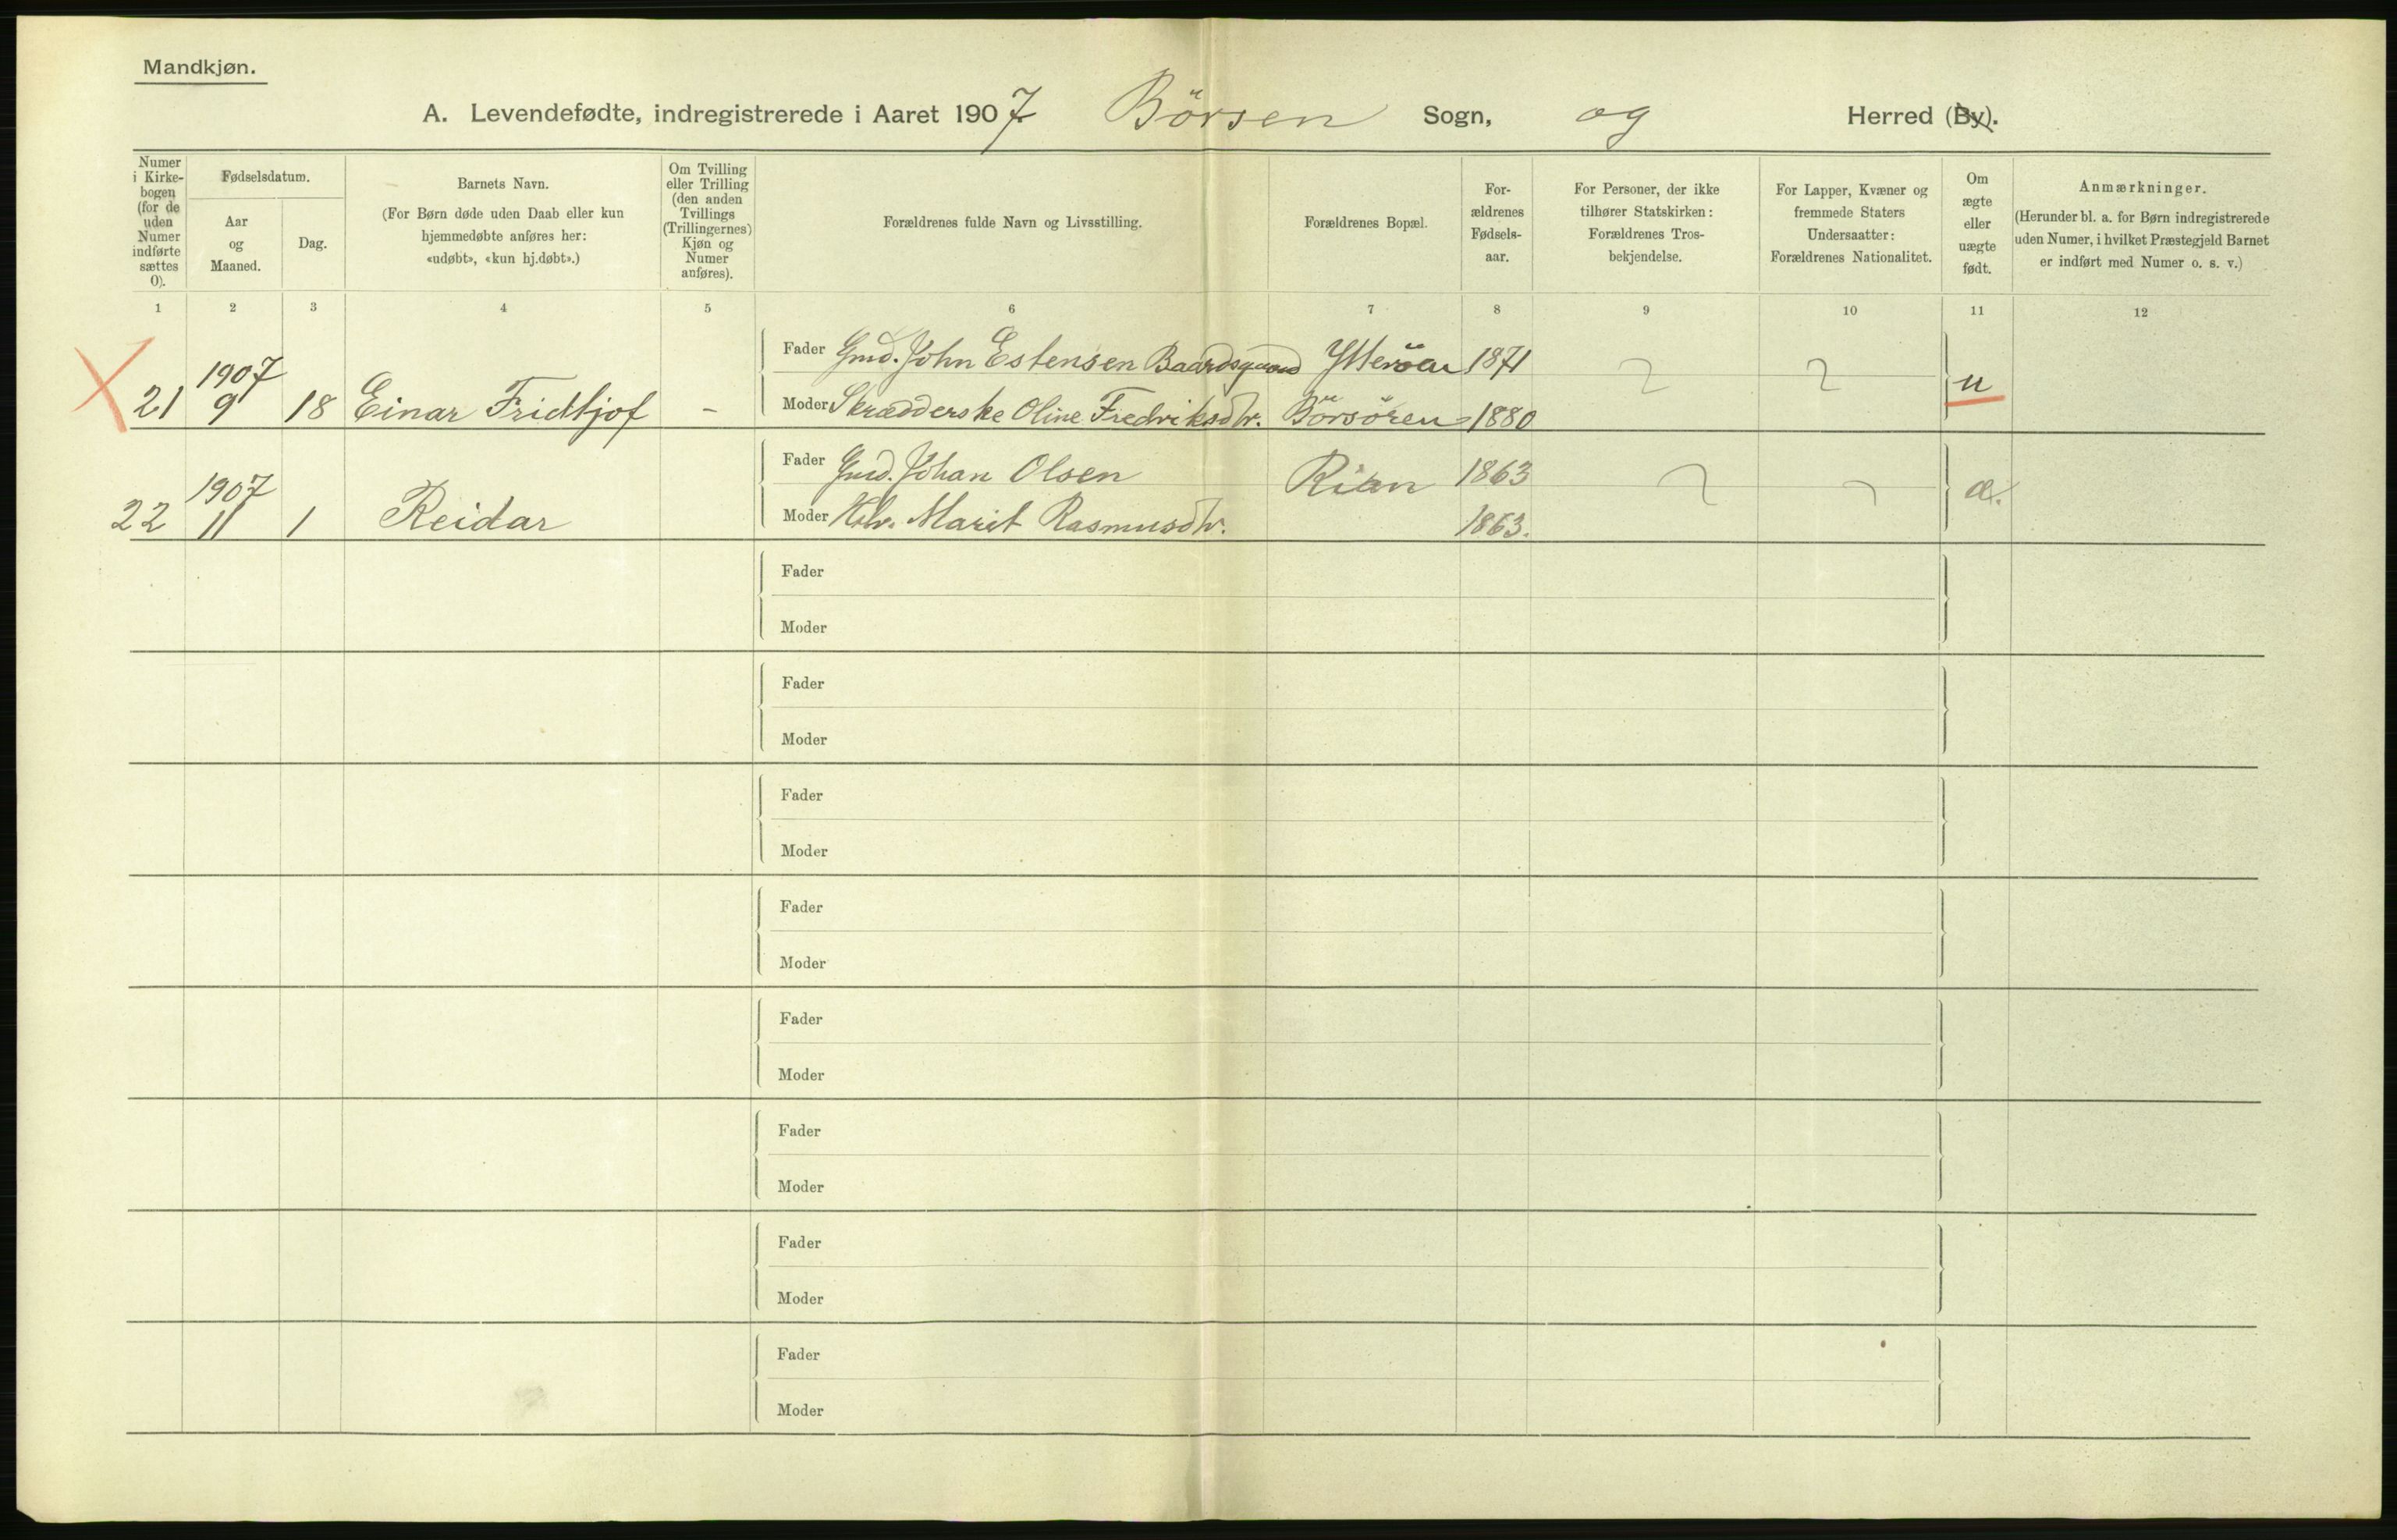 Mandkjøn.
A. Levendefødte, indregistrerede i Aaret 1907 Börsen Sogn, og Herred (By).
Numer i Kirke-bogen (for de uden Numer indførte sættes 0).
Fødselsdatum.
Aar og Maaned.
Dag.
Barnets Navn.
(For Børn døde uden Daab eller kun hjemmedøbte anføres her: «udøbt», «kun hj.døbt».)
Om Tvilling eller Trilling (den anden Tvillings (Trillingernes) Kjøn og Numer anføres).
Forældrenes fulde Navn og Livsstilling.
Forældrenes Bopæl.
For-ældrenes Fødsels-aar.
For Personer, der ikke tilhører Statskirken: Forældrenes Tros-bekjendelse.
For Lapper, Kvæner og fremmede Staters Undersaatter: Forældrenes Nationalitet.
Om ægte eller uægte født.
Anmærkninger.
(Herunder bl. a. for Børn indregistrerede uden Numer, i hvilket Præstegjeld Barnet er indført med Numer o. s. v.)
1 2 3 4 5 6 7 8 9 10 11 12
Fader Gmd. John Estensen Baardsgaard Ytteröen 1871
21 1907 9 18 Einar Fridtjof - Moder Skrædderske Oline Fredriksdtr. Börsören 1880 u
Fader Gmd. Johan Olsen Rian 1863
22 1907 11 1 Reidar Moder Hstr. Marit Rasmusdtr. 1863. æ.
Fader
Moder
Fader
Moder
Fader
Moder
Fader
Moder
Fader
Moder
Fader
Moder
Fader
Moder
Fader
Moder